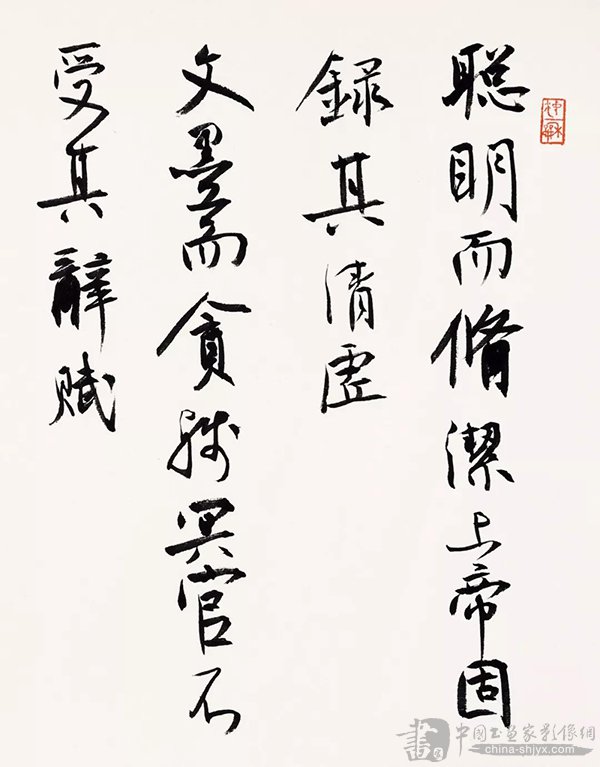 聰明而脩潔上帝固
錄其清虛
文墨而貪殘冥官不
受其辭賦
書
中國书画家影像網
china-shjyx.com